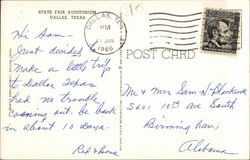 STATE FAIR AUDITORIUM
DALLAS, TEXAS
DALLAS, TEX
PM
JUN
1966
POST CARD
Hi Sam -
Just decided
Make a little trip
to Dallas Texas
had no trouble
coming out. be back
in about 10 days.
Red &
Mr & Mrs Sam H
5601 10th Ave South
Birmingham,
Alabama